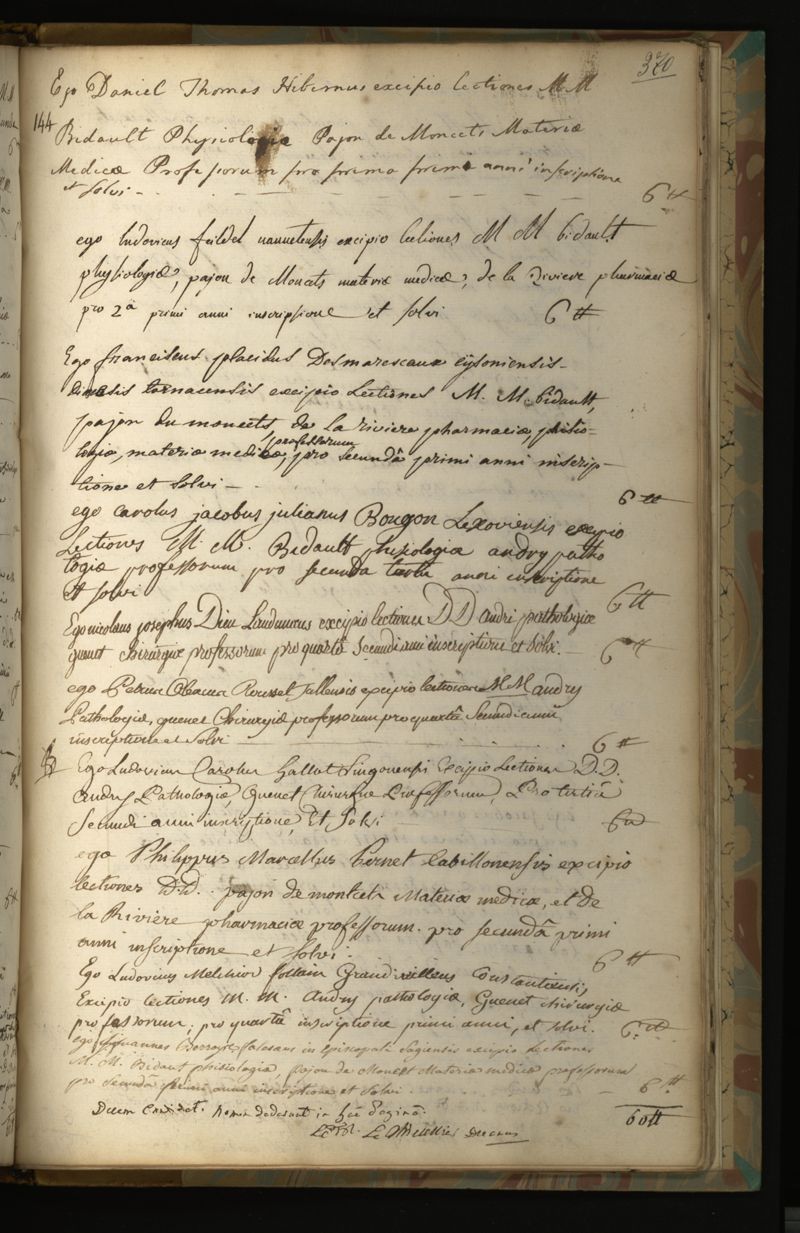 370
Ego Daniel Thomas Hibernus excipio lectiones M M
144
Bidault Physiologiæ Pajon de Moncets Materiæ
Medicæ Professorum pro prima primi anni inscriptione
et solvi - 6 ₶
ego ludovicus nannetensis excipio lectiones M M bidault
physiologiæ, pajon de Moncets materiæ medicæ, de la Riviere pharmaciæ
pro 2a primi anni inscriptione et solvi 6 ₶
Ego franciscus placidus Desmarescaux cysoniensis
diœcesis tornacensis excipio Lectiones M. M. bidault,
pajon du moncets, de La riviere pharmaciæ, phisio-
logiæ, materiæ medicæ, professorum pro secundâ primi anni inscrip-
tione et solvi - 6 ₶
ego carolus jacobus julianus Bougon Lexoviensis excipio
Lectiones M. M. Bidault phisiologiæ andry patho
logiæ professorum pro secunda anni inscriptione
et solvi 6 ₶
Ego nicolaus josephus Dieu Laudunæus excipio lectiones D D andri pathologiæ
guenet chirurgiæ professorum pro quartâ secundi anni inscriptione et solvi. 6 ₶
ego Petrus Roussel Tullensis excipio lectiones M M andry
Pathologiæ, guenet Chirurgiæ professorum pro quartâ Secundi anni
inscriptione et Solvi 6 ₶
Ego Ludovicus Carolus hallot Lingonensis Excipio Lectiones D.D.
andry Pathologiæ, Guenet Chirurgiæ Professorum, Pro tertiâ
Secundi anni inscriptione, Et Solvi 6 ₶
ego Philippus Marcellus Pernet Cabillonensis excipio
lectiones D.D. pajon de montcets Materiæ medicæ, et de
la Rivière pharmaciæ professorum. pro secundâ primi
anni inscriptione et solvi. 6 ₶
Ego Ludovicus Melchior follain Grandvilleus Constantiensis
Excipio lectiones M. M. Andry pathologiæ, Guenet chirurgiæ
professorum, pro quartâ inscriptione primi anni, et solvi. 6 ₶
ego Joannes in Episcopatu Sagiensis excipio Lectiones
M. M. Bidaut phisiologiæ, pajon de Moncet Materiæ medicæ professorum
pro secundâ primi anni inscriptione et Solvi 6 ₶
Decem Candidati nomen dederunt in hâc Paginâ. 60 ₶
Le Decanus